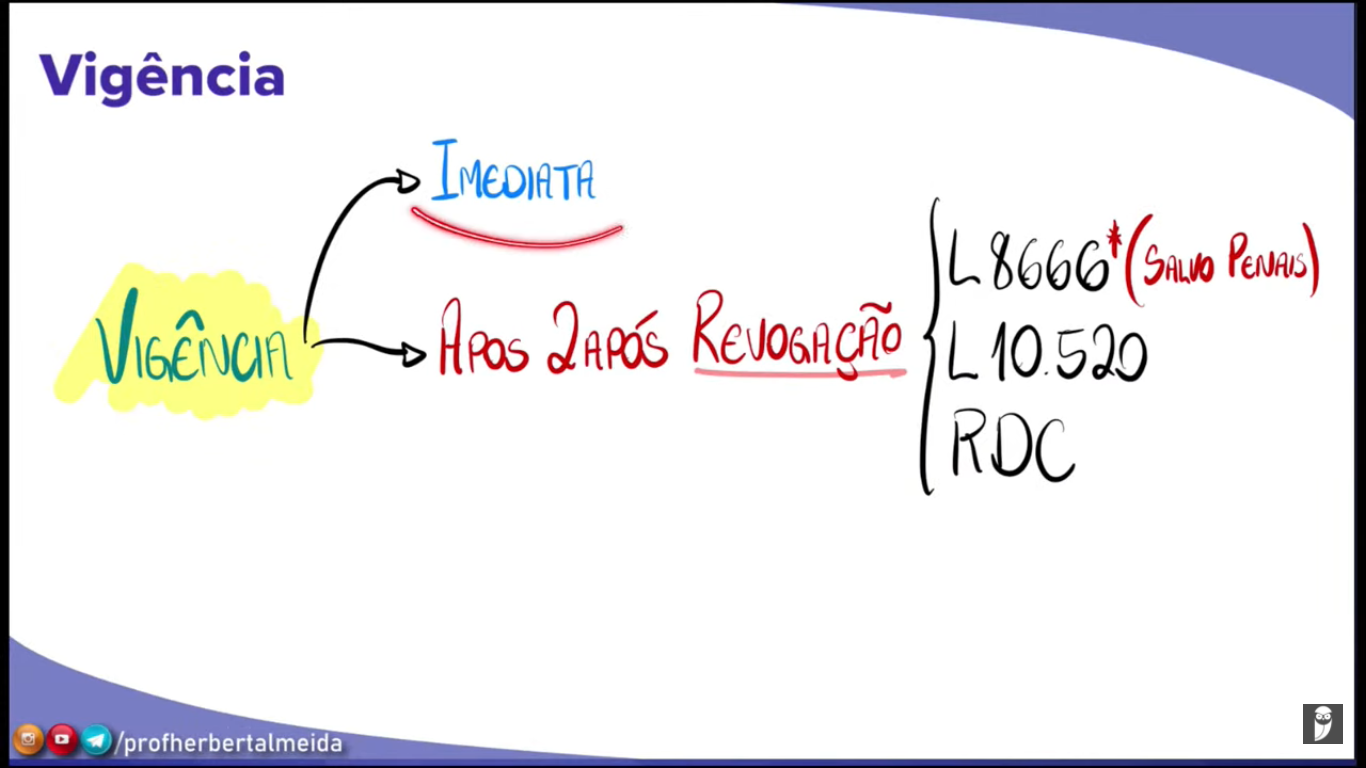 Vigência
IMEDIATA
VIGÊNCIA
APOS 2APÓS REVOGAÇÃO
L8666* (SALVO PENAIS)
L10.520
RDC
/profherbertalmeida